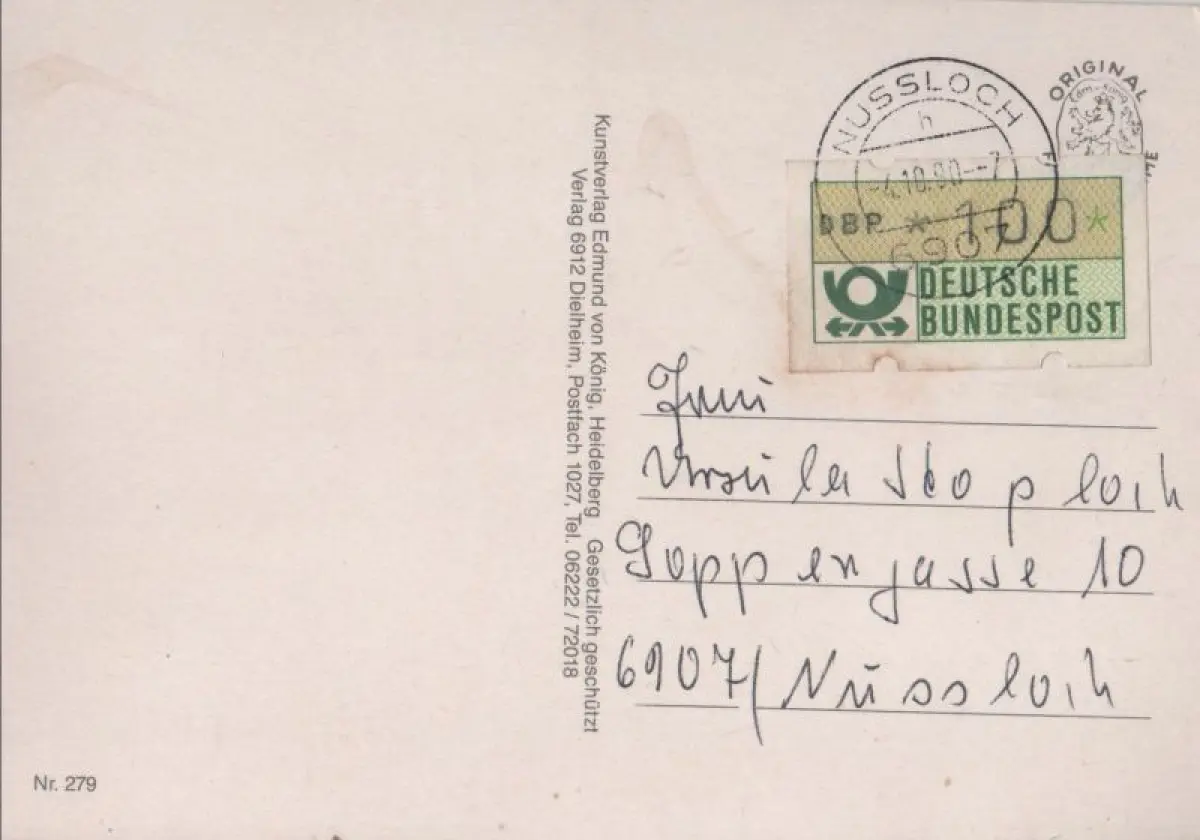 NUSSLOCH
h
-4.10.90--7
6907
ORIGINAL
Edm. König
DBP * 100 *
DEUTSCHE
BUNDESPOST
Kunstverlag Edmund von König, Heidelberg Gesetzlich geschützt
Verlag 6912 Dielheim, Postfach 1027, Tel. 06222 / 72018
Ursula
10
6907/Nussloch
Nr. 279